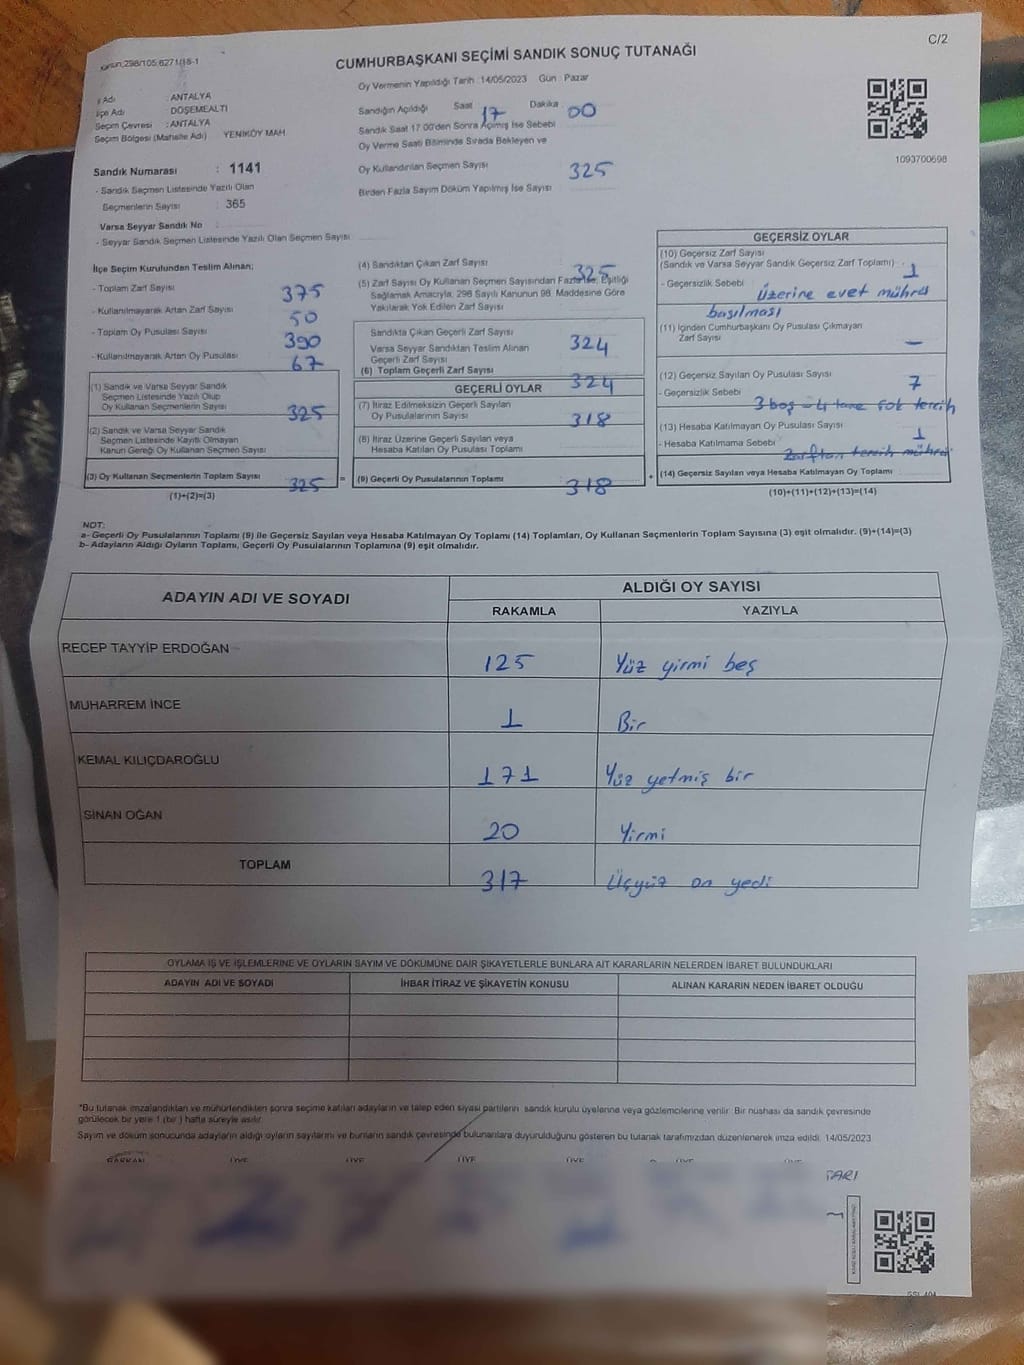 Kanun:298/105;6271/18-1
C/2
CUMHURBAŞKANI SEÇİMİ SANDIK SONUÇ TUTANAĞI
Oy Vermenin Yapıldığı Tarih :14/05/2023 Gün : Pazar
İl Adı : ANTALYA
İlçe Adı : DÖŞEMEALTI
Seçim Çevresi : ANTALYA
Seçim Bölgesi (Mahalle Adı) YENİKÖY MAH.
Sandığın Açıldığı Saat 17 Dakika 00
Sandık Saat 17.00'den Sonra Açılmış İse Sebebi
Oy Verme Saati Bitiminde Sırada Bekleyen ve
Oy Kullandırılan Seçmen Sayısı 325
Birden Fazla Sayım Döküm Yapılmış İse Sayısı
1093700698
Sandık Numarası : 1141
- Sandık Seçmen Listesinde Yazılı Olan
Seçmenlerin Sayısı : 365
Varsa Seyyar Sandık No
- Seyyar Sandık Seçmen Listesinde Yazılı Olan Seçmen Sayısı
İlçe Seçim Kurulundan Teslim Alınan;
- Toplam Zarf Sayısı 375
- Kullanılmayarak Artan Zarf Sayısı 50
- Toplam Oy Pusulası Sayısı 390
- Kullanılmayarak Artan Oy Pusulası 67
(1) Sandık ve Varsa Seyyar Sandık
Seçmen Listesinde Yazılı Olup
Oy Kullanan Seçmenlerin Sayısı 325
(2) Sandık ve Varsa Seyyar Sandık
Seçmen Listesinde Kayıtlı Olmayan
Kanun Gereği Oy Kullanan Seçmen Sayısı
(3) Oy Kullanan Seçmenlerin Toplam Sayısı 325 =
(1)+(2)=(3)
(4) Sandıktan Çıkan Zarf Sayısı 325
(5) Zarf Sayısı Oy Kullanan Seçmen Sayısından Fazla ise, Eşitliği
Sağlamak Amacıyla, 298 Sayılı Kanunun 98. Maddesine Göre
Yakılarak Yok Edilen Zarf Sayısı
Sandıkta Çıkan Geçerli Zarf Sayısı 324
Varsa Seyyar Sandıktan Teslim Alınan
Geçerli Zarf Sayısı
(6) Toplam Geçerli Zarf Sayısı 324
GEÇERLİ OYLAR
(7) İtiraz Edilmeksizin Geçerli Sayılan
Oy Pusulalarının Sayısı 318
(8) İtiraz Üzerine Geçerli Sayılan veya
Hesaba Katılan Oy Pusulası Toplamı
(9) Geçerli Oy Pusulalarının Toplamı 318 +
GEÇERSİZ OYLAR
(10) Geçersiz Zarf Sayısı
(Sandık ve Varsa Seyyar Sandık Geçersiz Zarf Toplamı) 1
- Geçersizlik Sebebi Üzerine evet mührü
basılması
(11) İçinden Cumhurbaşkanı Oy Pusulası Çıkmayan
Zarf Sayısı —
(12) Geçersiz Sayılan Oy Pusulası Sayısı 7
- Geçersizlik Sebebi 3 boş - 4 tane çok tercih
(13) Hesaba Katılmayan Oy Pusulası Sayısı 1
- Hesaba Katılmama Sebebi Zarftan tercih mührü
(14) Geçersiz Sayılan veya Hesaba Katılmayan Oy Toplamı
(10)+(11)+(12)+(13)=(14)
NOT:
a- Geçerli Oy Pusulalarının Toplamı (9) ile Geçersiz Sayılan veya Hesaba Katılmayan Oy Toplamı (14) Toplamları, Oy Kullanan Seçmenlerin Toplam Sayısına (3) eşit olmalıdır. (9)+(14)=(3)
b- Adayların Aldığı Oyların Toplamı, Geçerli Oy Pusulalarının Toplamına (9) eşit olmalıdır.
ADAYIN ADI VE SOYADI ALDIĞI OY SAYISI
RAKAMLA YAZIYLA
RECEP TAYYİP ERDOĞAN 125 Yüz yirmi beş
MUHARREM İNCE 1 Bir
KEMAL KILIÇDAROĞLU 171 Yüz yetmiş bir
SİNAN OĞAN 20 Yirmi
TOPLAM 317 Üçyüz on yedi
OYLAMA İŞ VE İŞLEMLERİNE VE OYLARIN SAYIM VE DÖKÜMÜNE DAİR ŞİKAYETLERLE BUNLARA AİT KARARLARIN NELERDEN İBARET BULUNDUKLARI
ADAYIN ADI VE SOYADI İHBAR İTİRAZ VE ŞİKAYETİN KONUSU ALINAN KARARIN NEDEN İBARET OLDUĞU
*Bu tutanak imzalandıktan ve mühürlendikten sonra seçime katılan adayların ve talep eden siyasi partilerin sandık kurulu üyelerine veya gözlemcilerine verilir. Bir nüshası da sandık çevresinde
görülecek bir yere 1 (bir) hafta süreyle asılır.
Sayım ve döküm sonucunda adayların aldığı oyların sayılarını ve bunların sandık çevresinde bulunanlara duyurulduğunu gösteren bu tutanak tarafımızdan düzenlenerek imza edildi. 14/05/2023
BAŞKAN ÜYE ÜYE ÜYE ÜYE ÜYE ÜYE